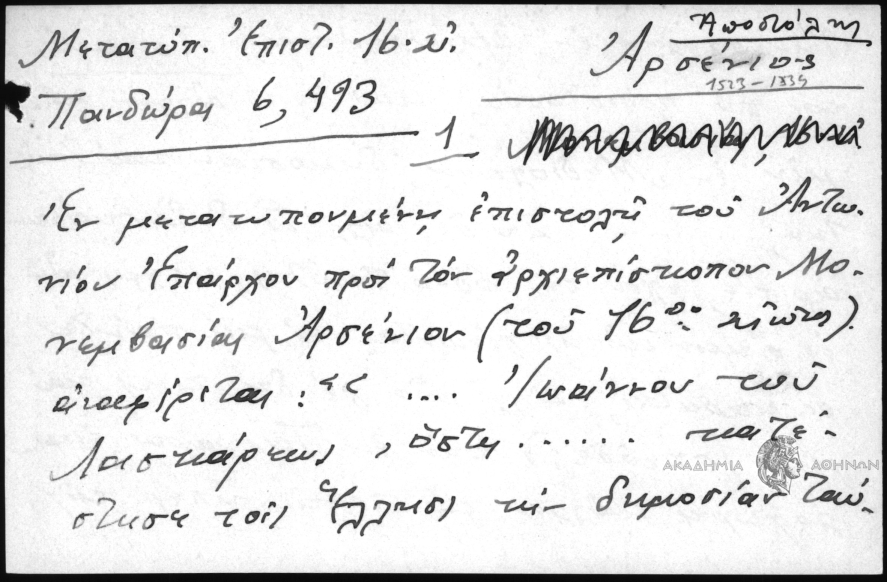 Μετατύπ. Ἐπιστ. 16. αἰ.
Ἀποστόλης
Ἀρσένιος
Πανδώρα 6, 493
1
Ἐν μετατυπουμένῃ ἐπιστολῇ τοῦ Ἀντω-
νίου Ἐπάρχου πρὸς τὸν ἀρχιεπίσκοπον Μο-
νεμβασίας Ἀρσένιον (τοῦ 16ου αἰῶνος).
ἀναφέρεται : « .... Ἰωάννου τοῦ
Λασκάρεως, ὅστις ...... κατέ-
στησε τοῖς Ἕλλησι τὴν δημοσίαν ταύ-
ΑΚΑΔΗΜΙΑ ΑΘΗΝΩΝ